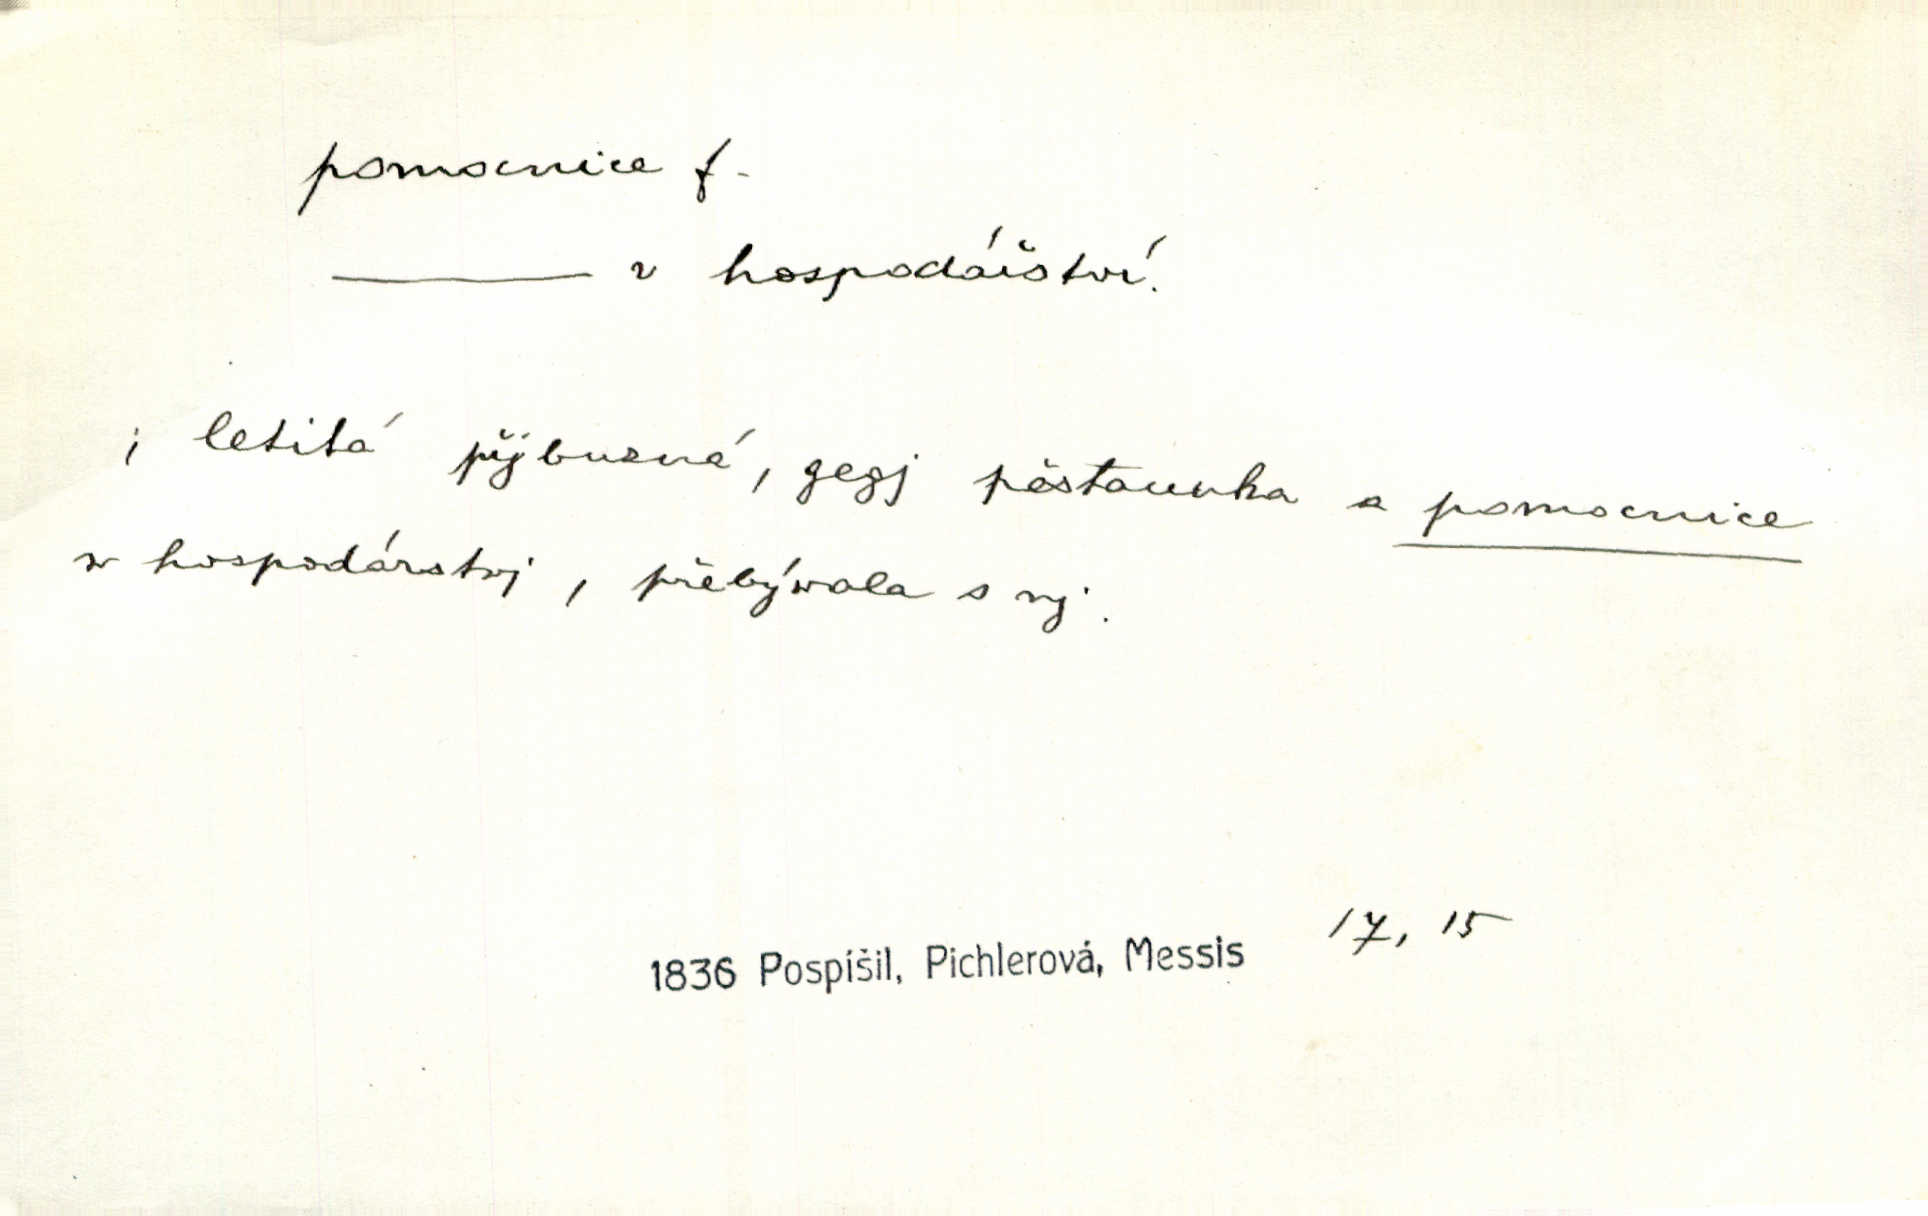 pomocnice f.
——— v hospodářství.
; letitá přjbuzná, gegj pěstaunka a pomocnice
w hospodárstvj, přebýwala s nj.
1836 Pospíšil, Pichlerová, Messis 17, 15